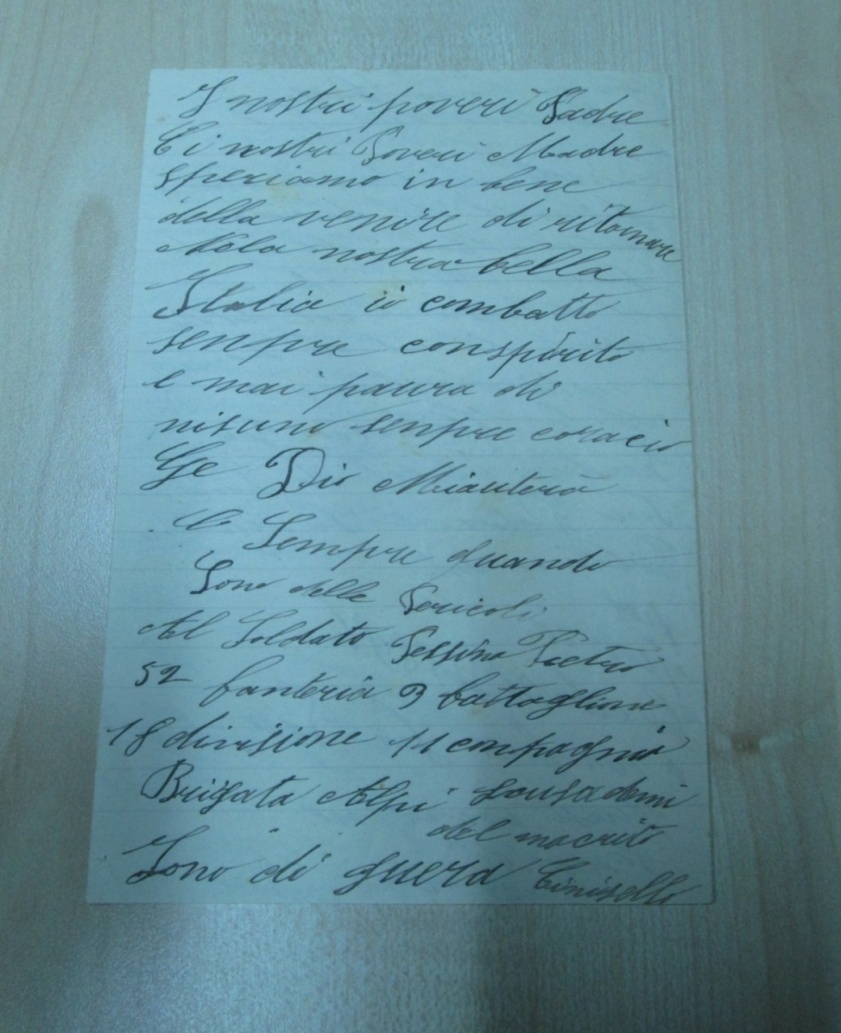 I nostri poveri Padre
E i nostri Poveri Madre
speriamo in bene
della venire di ritornare
Nela nostra bella
Italia io combatto
senpre conspirito
e mai paura di
nisuno senpre coracio
Ge Dio Miauterà
E Sempre quando
Sono delle Pericoli
Al Soldato Pessina Pietro
52 fanteria 3 battaglione
18 divisione 11 compagnia
Brigata Alpi
del
Sono di guera Ciniselli